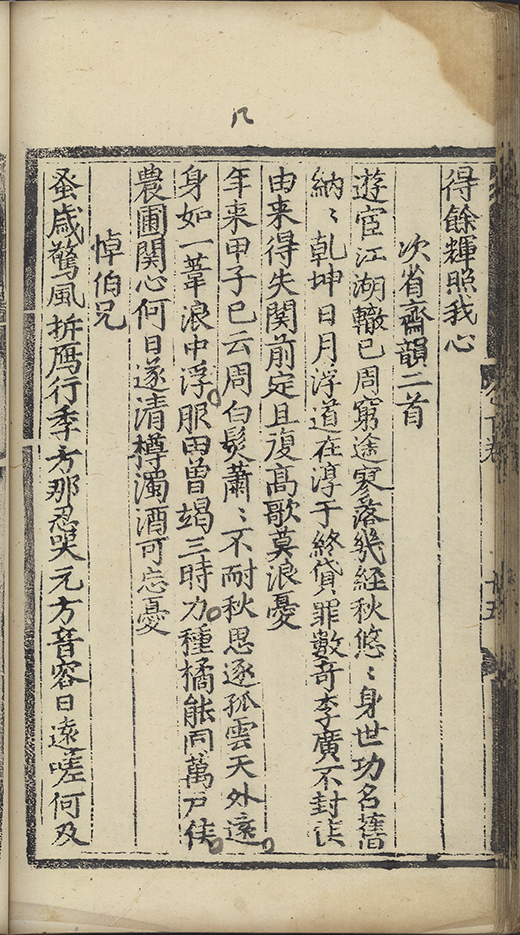 得餘輝照我心
次省齋韻二首
遊宦江湖轍已周窮途寥落幾経秋悠〻身世功名舊
納〻乾坤日月浮道在淳于終貸罪數奇李廣不封侯
由来得失関前定且復高歌莫浪憂
年来甲子已云周白髮蕭〻不耐秋思逐孤雲天外遠
身如一葦浪中浮服田曾竭三時力種橘能同萬戶侯
農圃関心何日遂清樽濁酒可忘憂
悼伯兄
蚤歲驚風折鴈行季方那忍哭元方音容日遠嗟何及
下卷
廿五